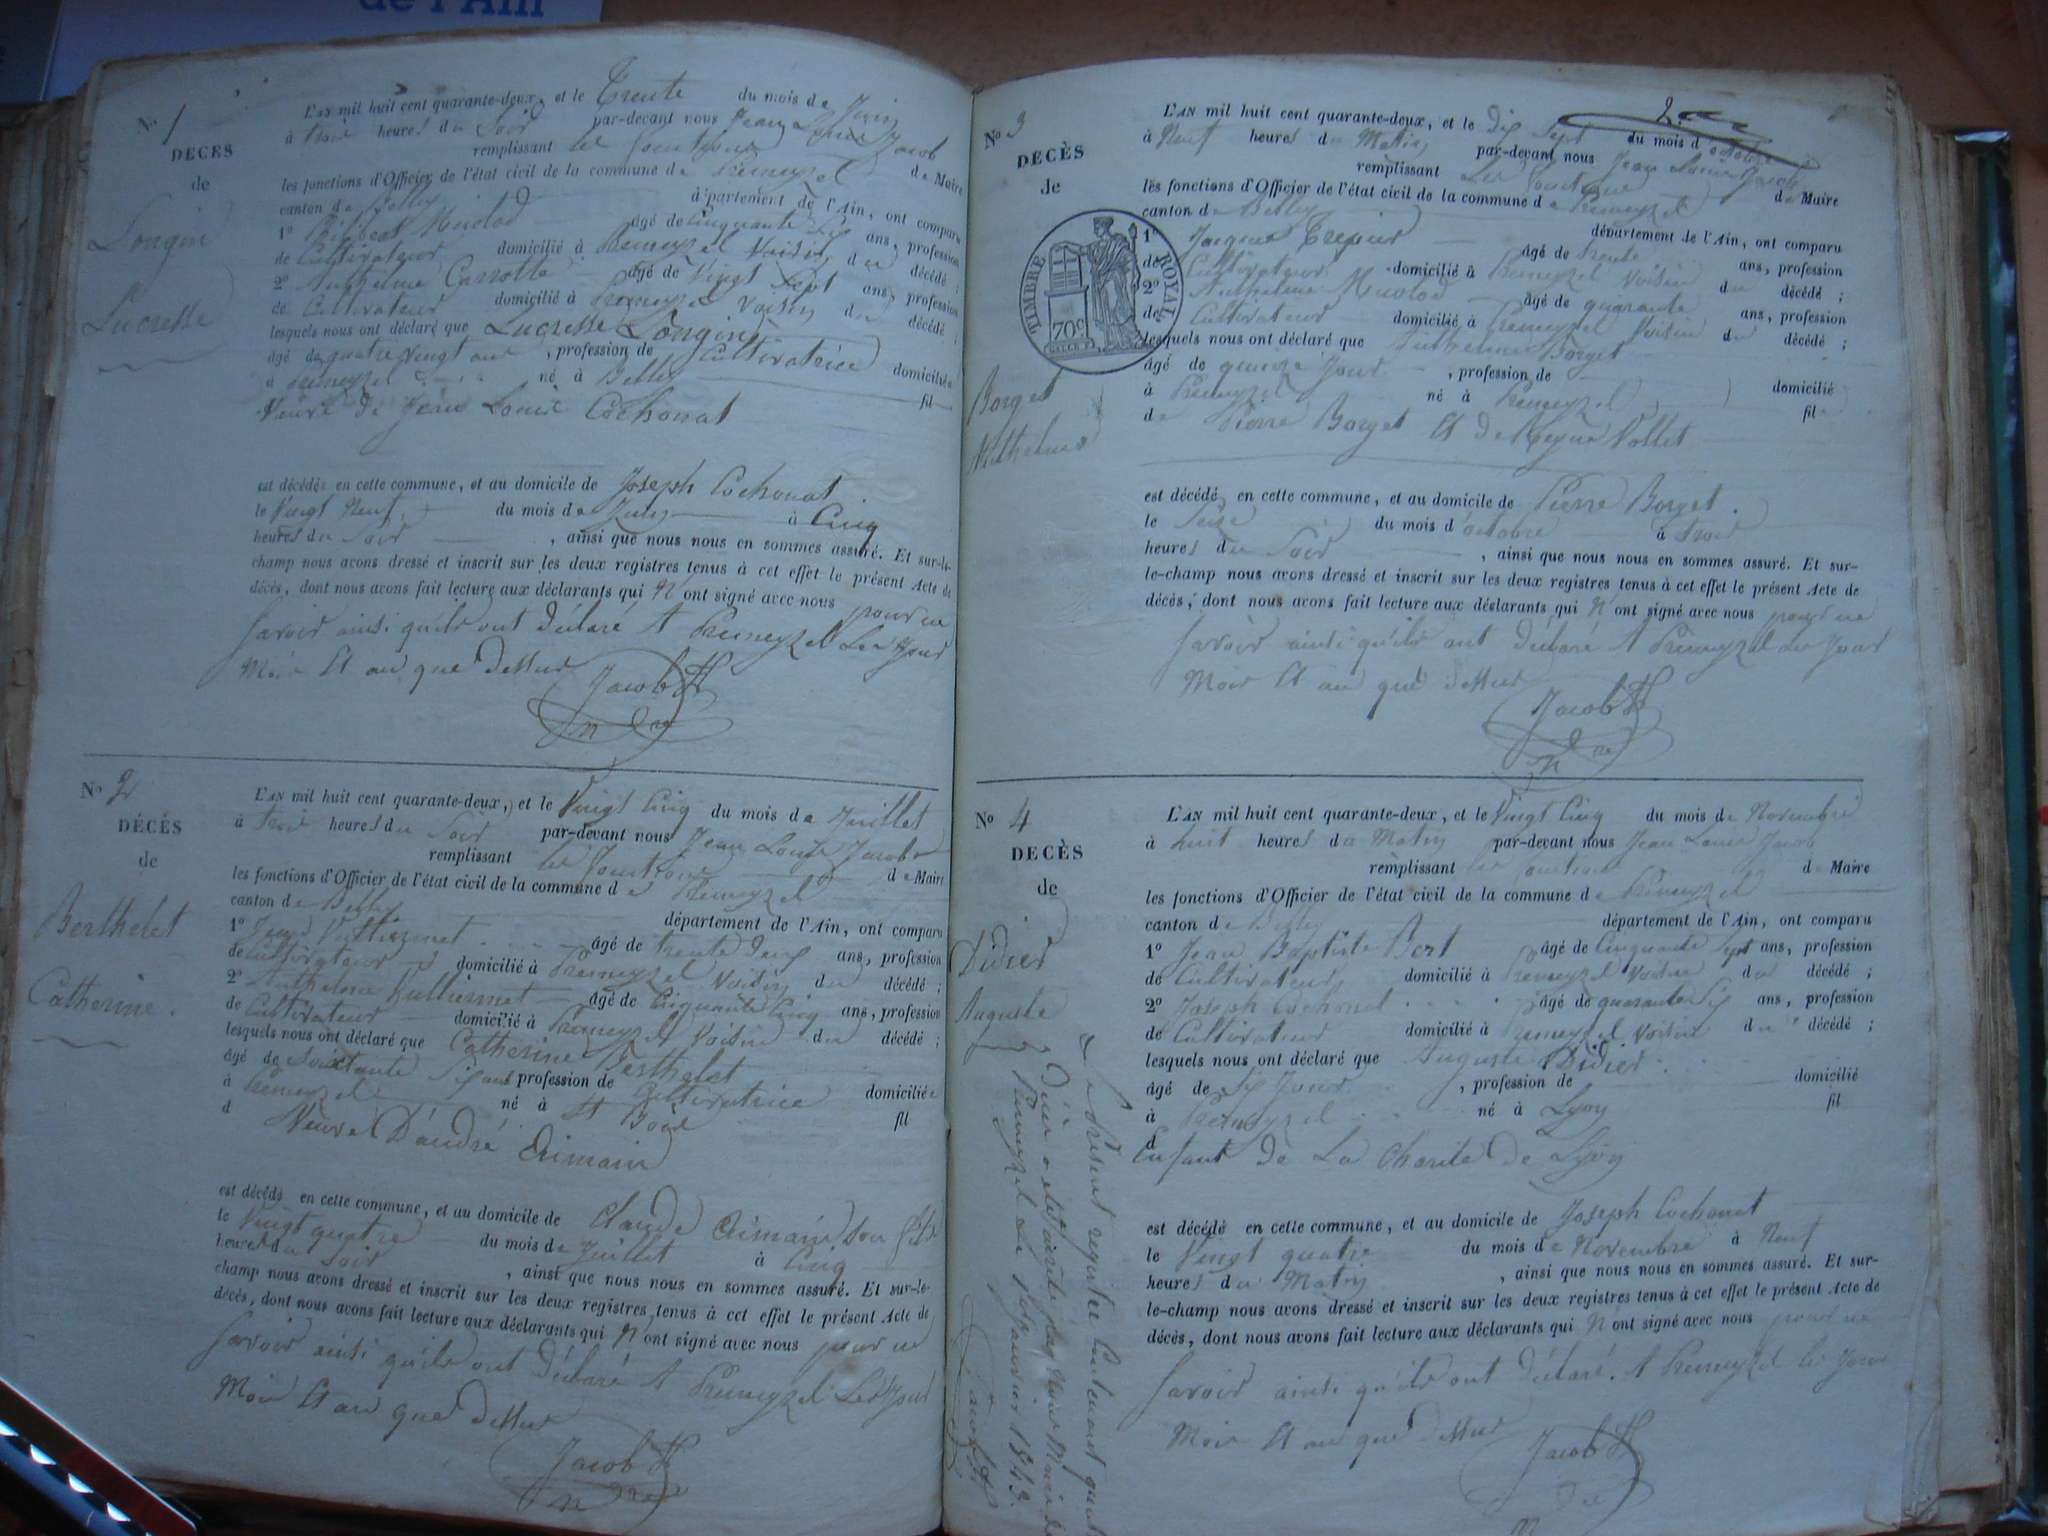 de l'Ain
No 1
DÉCÈS
de
Longin
Lucresse
L'AN mil huit cent quarante-deux, et le Trente du mois de Juin
à trois heures du Soir par-devant nous Jean Louis Jacob
remplissant les fonctions de Maire
les fonctions d'Officier de l'état civil de la commune de Premeyzel
canton de Belley département de l'Ain, ont comparu
1º Miclod âgé de Cinquante Six ans, profession
de Cultivateur domicilié à Premeyzel Voisin du décédé ;
2º Anthelme âgé de Vingt Sept ans, profession
de Cultivateur domicilié à Premeyzel Voisin du décédé ;
lesquels nous ont déclaré que Lucresse Longin
âgé de quatre Vingt ans, profession de Cultivatrice domiciliée
à Premeyzel né à Belley fil
Veuve de Jean Louis Cochonat
est décédée en cette commune, et au domicile de Joseph Cochonat
le Vingt Neuf du mois de Juin à Cinq
heures du Soir, ainsi que nous nous en sommes assuré. Et sur-le-
champ nous avons dressé et inscrit sur les deux registres tenus à cet effet le présent Acte de
décès, dont nous avons fait lecture aux déclarants qui N'ont signé avec nous pour ne
Savoir ainsi qu'ils ont Déclaré A Premeyzel Les Jour
Mois Et an que Dessus
Jacob
No 2
DÉCÈS
de
Berthelet
Catherine.
L'AN mil huit cent quarante-deux, et le Vingt Cinq du mois de Juillet
à trois heures du Soir par-devant nous Jean Louis Jacob
remplissant les fonctions de Maire
les fonctions d'Officier de l'état civil de la commune de Premeyzel
canton de Belley département de l'Ain, ont comparu
1º Vulliermet âgé de trente Deux ans, profession
de Cultivateur domicilié à Premeyzel Voisin du décédé ;
2º Anthelme Vulliermet âgé de Cinquante Cinq ans, profession
de Cultivateur domicilié à Premeyzel Voisin du décédé ;
lesquels nous ont déclaré que Catherine Berthelet
âgé de Soixante Six ans profession de Cultivatrice domiciliée
à Premeyzel né à St Bois fil
d Veuve D'andré Crimain
est décédé en cette commune, et au domicile de Claude Crimain Son fils
le Vingt quatre du mois de Juillet à Cinq
heures du Soir, ainsi que nous nous en sommes assuré. Et sur-le-
champ nous avons dressé et inscrit sur les deux registres tenus à cet effet le présent Acte de
décès, dont nous avons fait lecture aux déclarants qui N'ont signé avec nous pour ne
Savoir ainsi qu'ils ont Déclaré A Premeyzel Les Jour
Mois Et an que Dessus
Jacob
No 3
DECÈS
de
TIMBRE ROYAL
70c
Borget
Anthelme
L'AN mil huit cent quarante-deux, et le Dix Sept du mois d'octobre
à Neuf heures du Matin par-devant nous Jean Louis Jacob
remplissant Les fonctions de Maire
les fonctions d'Officier de l'état civil de la commune de Premeyzel
canton de Belley département de l'Ain, ont comparu
1º Jacques Trepier âgé de trente ans, profession
de Cultivateur domicilié à Premeyzel Voisin du décédé ;
2º Anthelme Miclod âgé de quarante ans, profession
de Cultivateur domicilié à Premeyzel Voisin du décédé ;
lesquels nous ont déclaré que Anthelme Borget
âgé de quinze Jours, profession de domicilié
à Premeyzel né à Premeyzel fil
de Pierre Borget Et De Reyne Pollet
est décédé en cette commune, et au domicile de Pierre Borget.
le Seize du mois d'octobre à trois
heures du Soir, ainsi que nous nous en sommes assuré. Et sur-
le-champ nous avons dressé et inscrit sur les deux registres tenus à cet effet le présent Acte de
décès, dont nous avons fait lecture aux déclarants qui N'ont signé avec nous pour ne
Savoir ainsi qu'ils ont Déclaré A Premeyzel Les Jour
Mois Et an que Dessus
Jacob
No 4
DECÈS
de
Didier
Auguste
L'AN mil huit cent quarante-deux, et le Vingt Cinq du mois de Novembre
à huit heures du Matin par-devant nous Jean Louis Jacob
remplissant les fonctions de Maire
les fonctions d'Officier de l'état civil de la commune de Premeyzel
canton de Belley département de l'Ain, ont comparu
1º Jean Baptiste Bert âgé de Cinquante Sept ans, profession
de Cultivateur domicilié à Premeyzel Voisin du décédé ;
2º Joseph Cochonat âgé de quarante Six ans, profession
de Cultivateur domicilié à Premeyzel Voisin du décédé ;
lesquels nous ont déclaré que Auguste Didier
âgé de Six Jours, profession de domicilié
à Premeyzel né à Lyon fil
d Enfant De La Charité De Lyon
est décédé en cette commune, et au domicile de Joseph Cochonat
le Vingt quatre du mois de Novembre à Neuf
heures du Matin, ainsi que nous nous en sommes assuré. Et sur-
le-champ nous avons dressé et inscrit sur les deux registres tenus à cet effet le présent Acte de
décès, dont nous avons fait lecture aux déclarants qui N'ont signé avec nous pour ne
Savoir ainsi qu'ils ont Déclaré. A Premeyzel les Jour
Mois Et an que Dessus
Jacob
Le Présent registre Contenant quatre
par Nous Maire de
Premeyzel Le 1er Janvier 1843.
Jacob